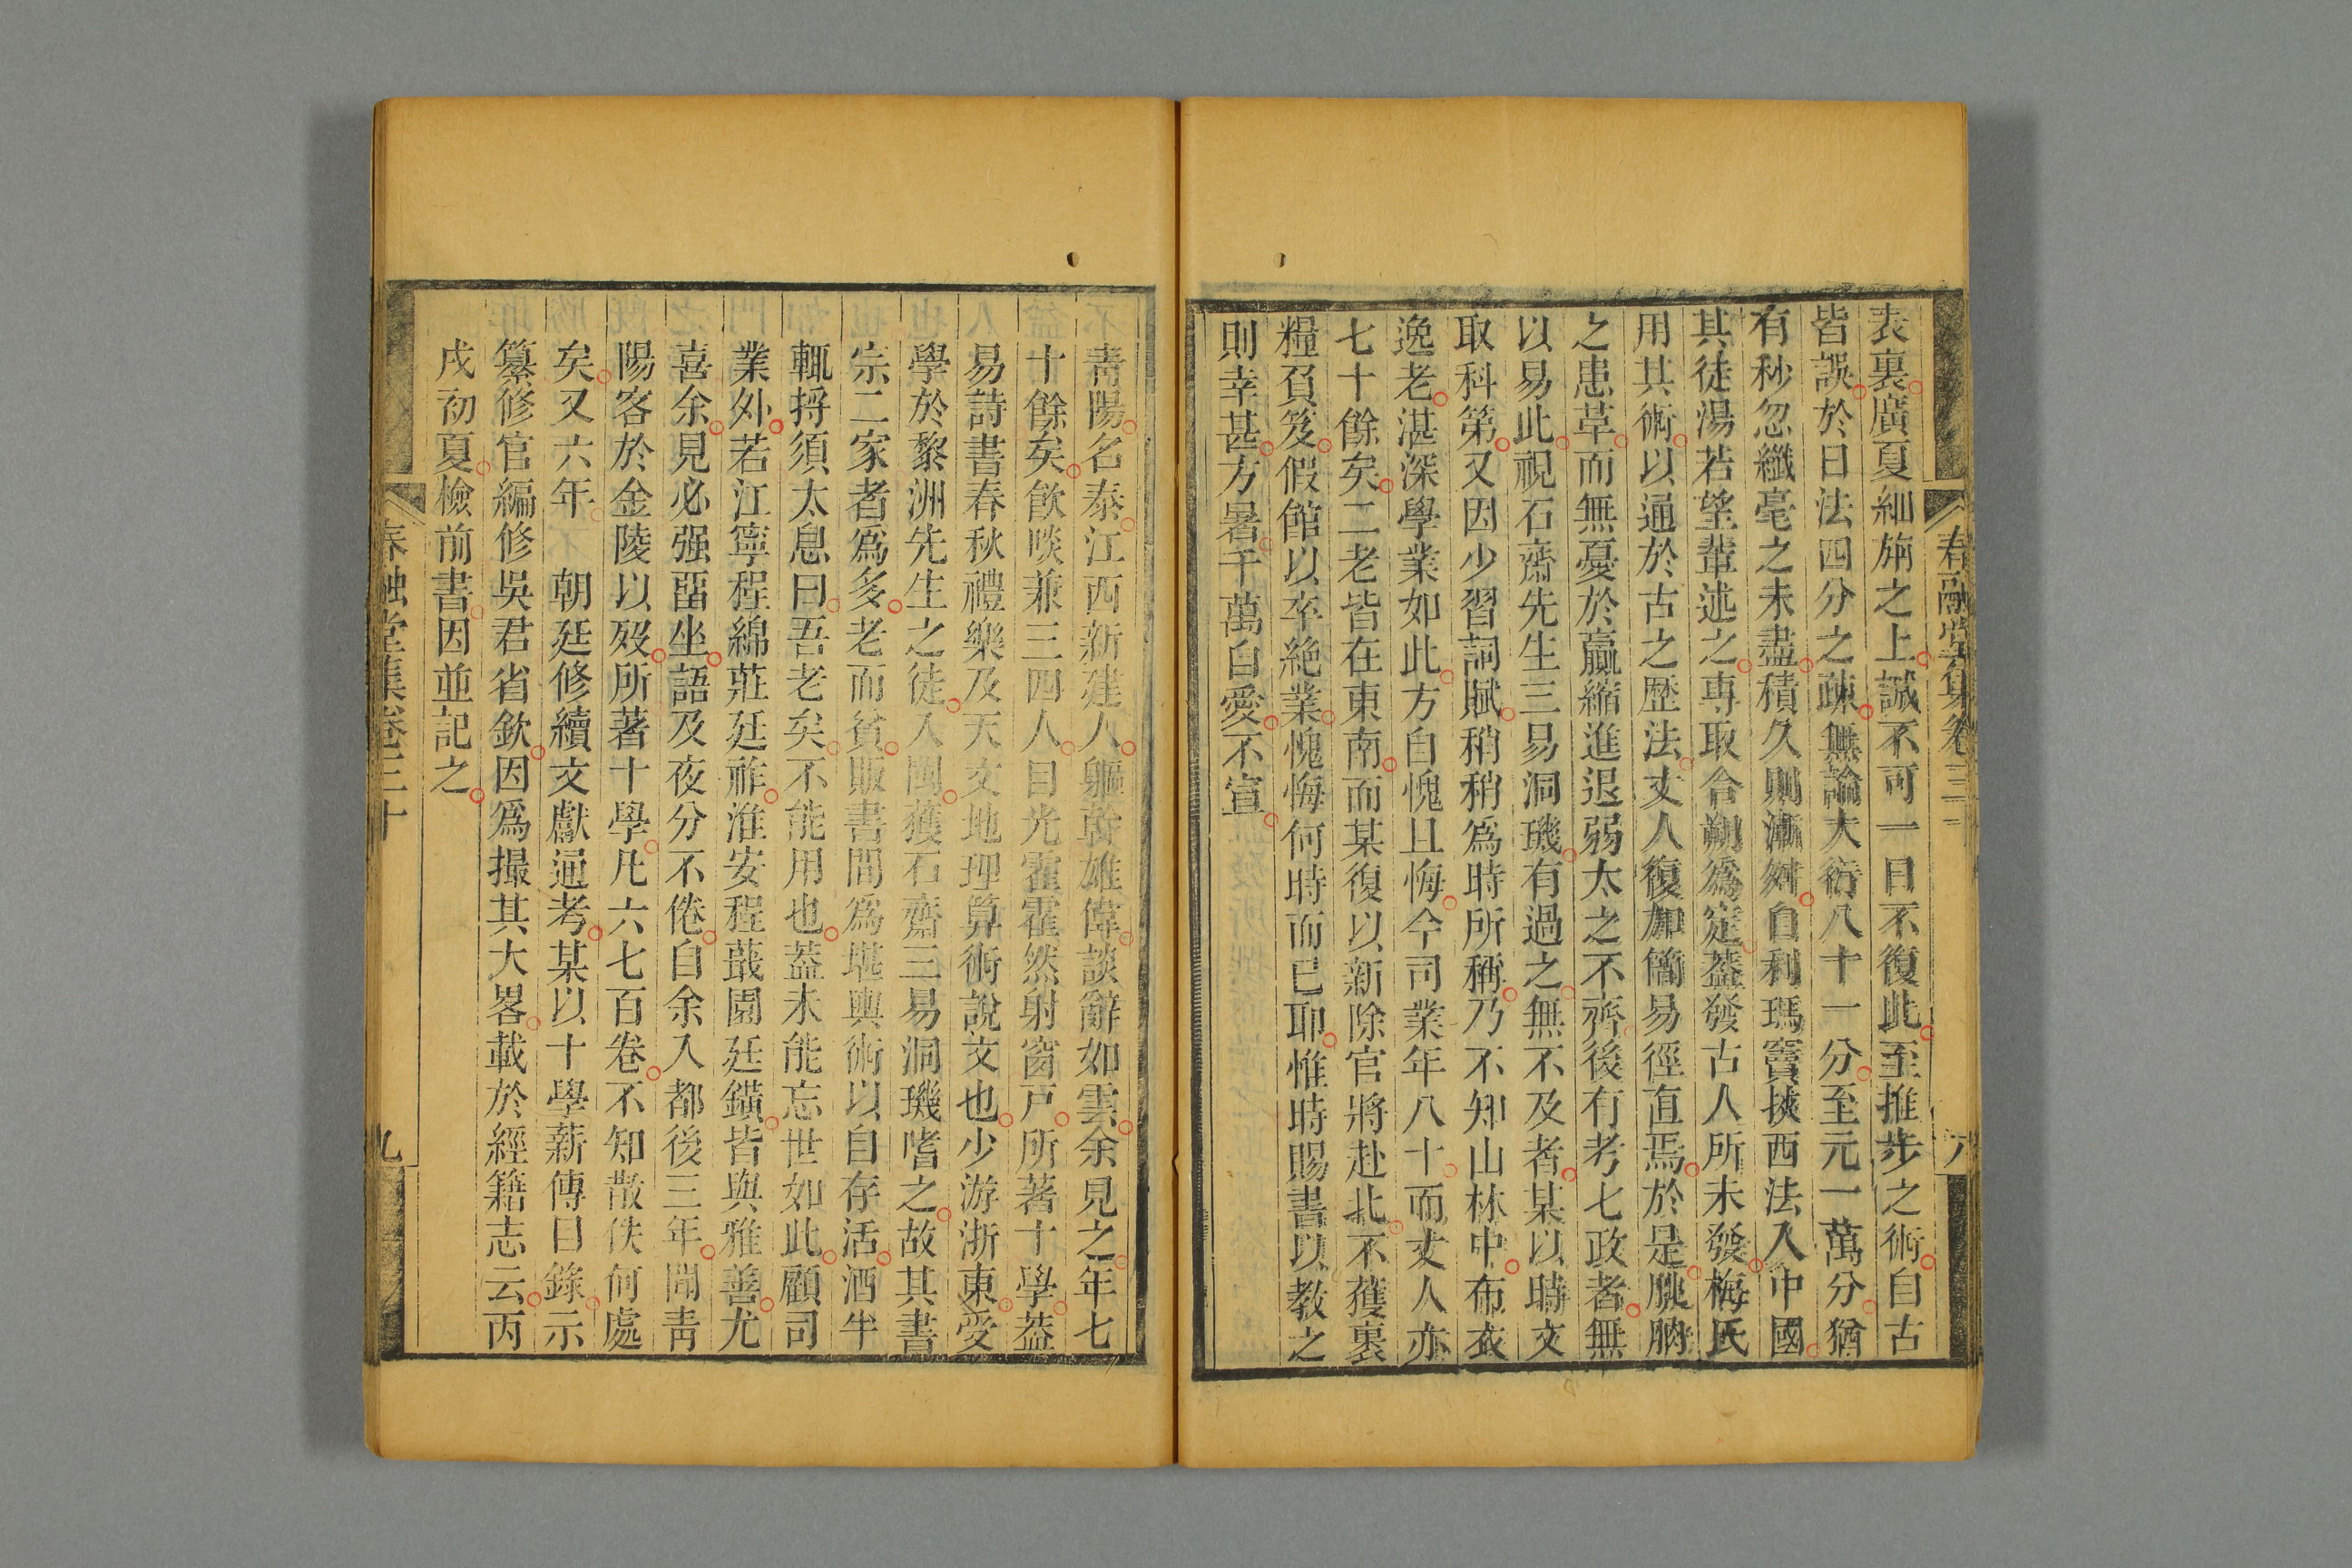 表裏廣夏細旃之上誠不可一日不復此至推步之術自古
皆誤於日法四分之疎無論大衍八十一分至元一萬分猶
有秒忽纖毫之未盡積久則漸舛自利瑪竇挾西法入中國
其徒湯若望輩述之専取合朔爲定葢發古人所未發梅氏
用其術以通於古之歴法丈人復加簡易徑直焉於是朓朒
之患草而無憂於贏縮進退弱太之不齊後有考七政者無
以易此視石齋先生三易洞璣有過之無不及者某以時文
取科第又因少習詞賦稍稍爲時所稱乃不知山林中布衣
逸老湛深學業如此方自愧且悔今司業年八十而丈人亦
七十餘矣二老皆在東南而某復以新除官將赴北不獲裏
糧負笈假館以卒絶業愧悔何時而已耶惟時賜書以教之
則幸甚方暑千萬自愛不宣
春融堂集卷三
八
青陽名泰江西新建人軀幹雄偉談辭如雲余見之年七
十餘矣飲啖兼三四人目光霍霍然射窗戸所著十學葢
易詩書春秋禮樂及天文地理算術說文也少游浙東受
學於黎洲先生之徒入閩獲石齋三易洞璣嗜之故其書
宗二家者爲多老而貧販書間爲堪輿術以自存活酒半
輒捋須太息曰吾老矣不能用也葢未能忘世如此顧司
業外若江寧程綿莊廷祚淮安程蕺園廷鐄皆與雅善尤
喜余見必强畱坐語及夜分不倦自余入都後三年聞青
陽客於金陵以歿所著十學凡六七百卷不知散佚何處
矣又六年　朝廷修續文獻通考某以十學薪傳目錄示
纂修官編修吳君省欽因爲撮其大畧載於經籍志云丙
戌初夏檢前書因並記之
春融堂集卷三十
九